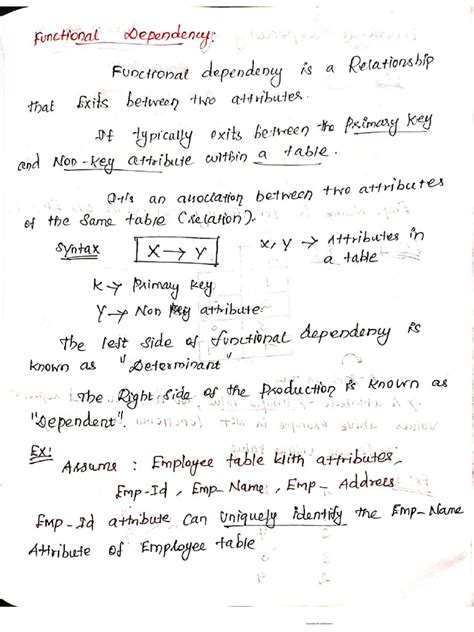 Functional Dependency:
Functional dependency is a Relationship
that Exits between two attributes.
It typically exits between the Primary Key
and Non-key attribute within a table.
It is an association between two attributes
of the same table (relation).
Syntax X → Y x, y → Attributes in
a table
X → Primary key
Y → Non key attribute.
The left side of functional dependency is
known as "Determinant"
The Right side of the Production is known as
"Dependent".
Ex:
Assume : Employee table with attributes
Emp-Id, Emp-Name, Emp-Address
Emp-Id attribute Can uniquely identify the Emp-Name
Attribute of Employee table